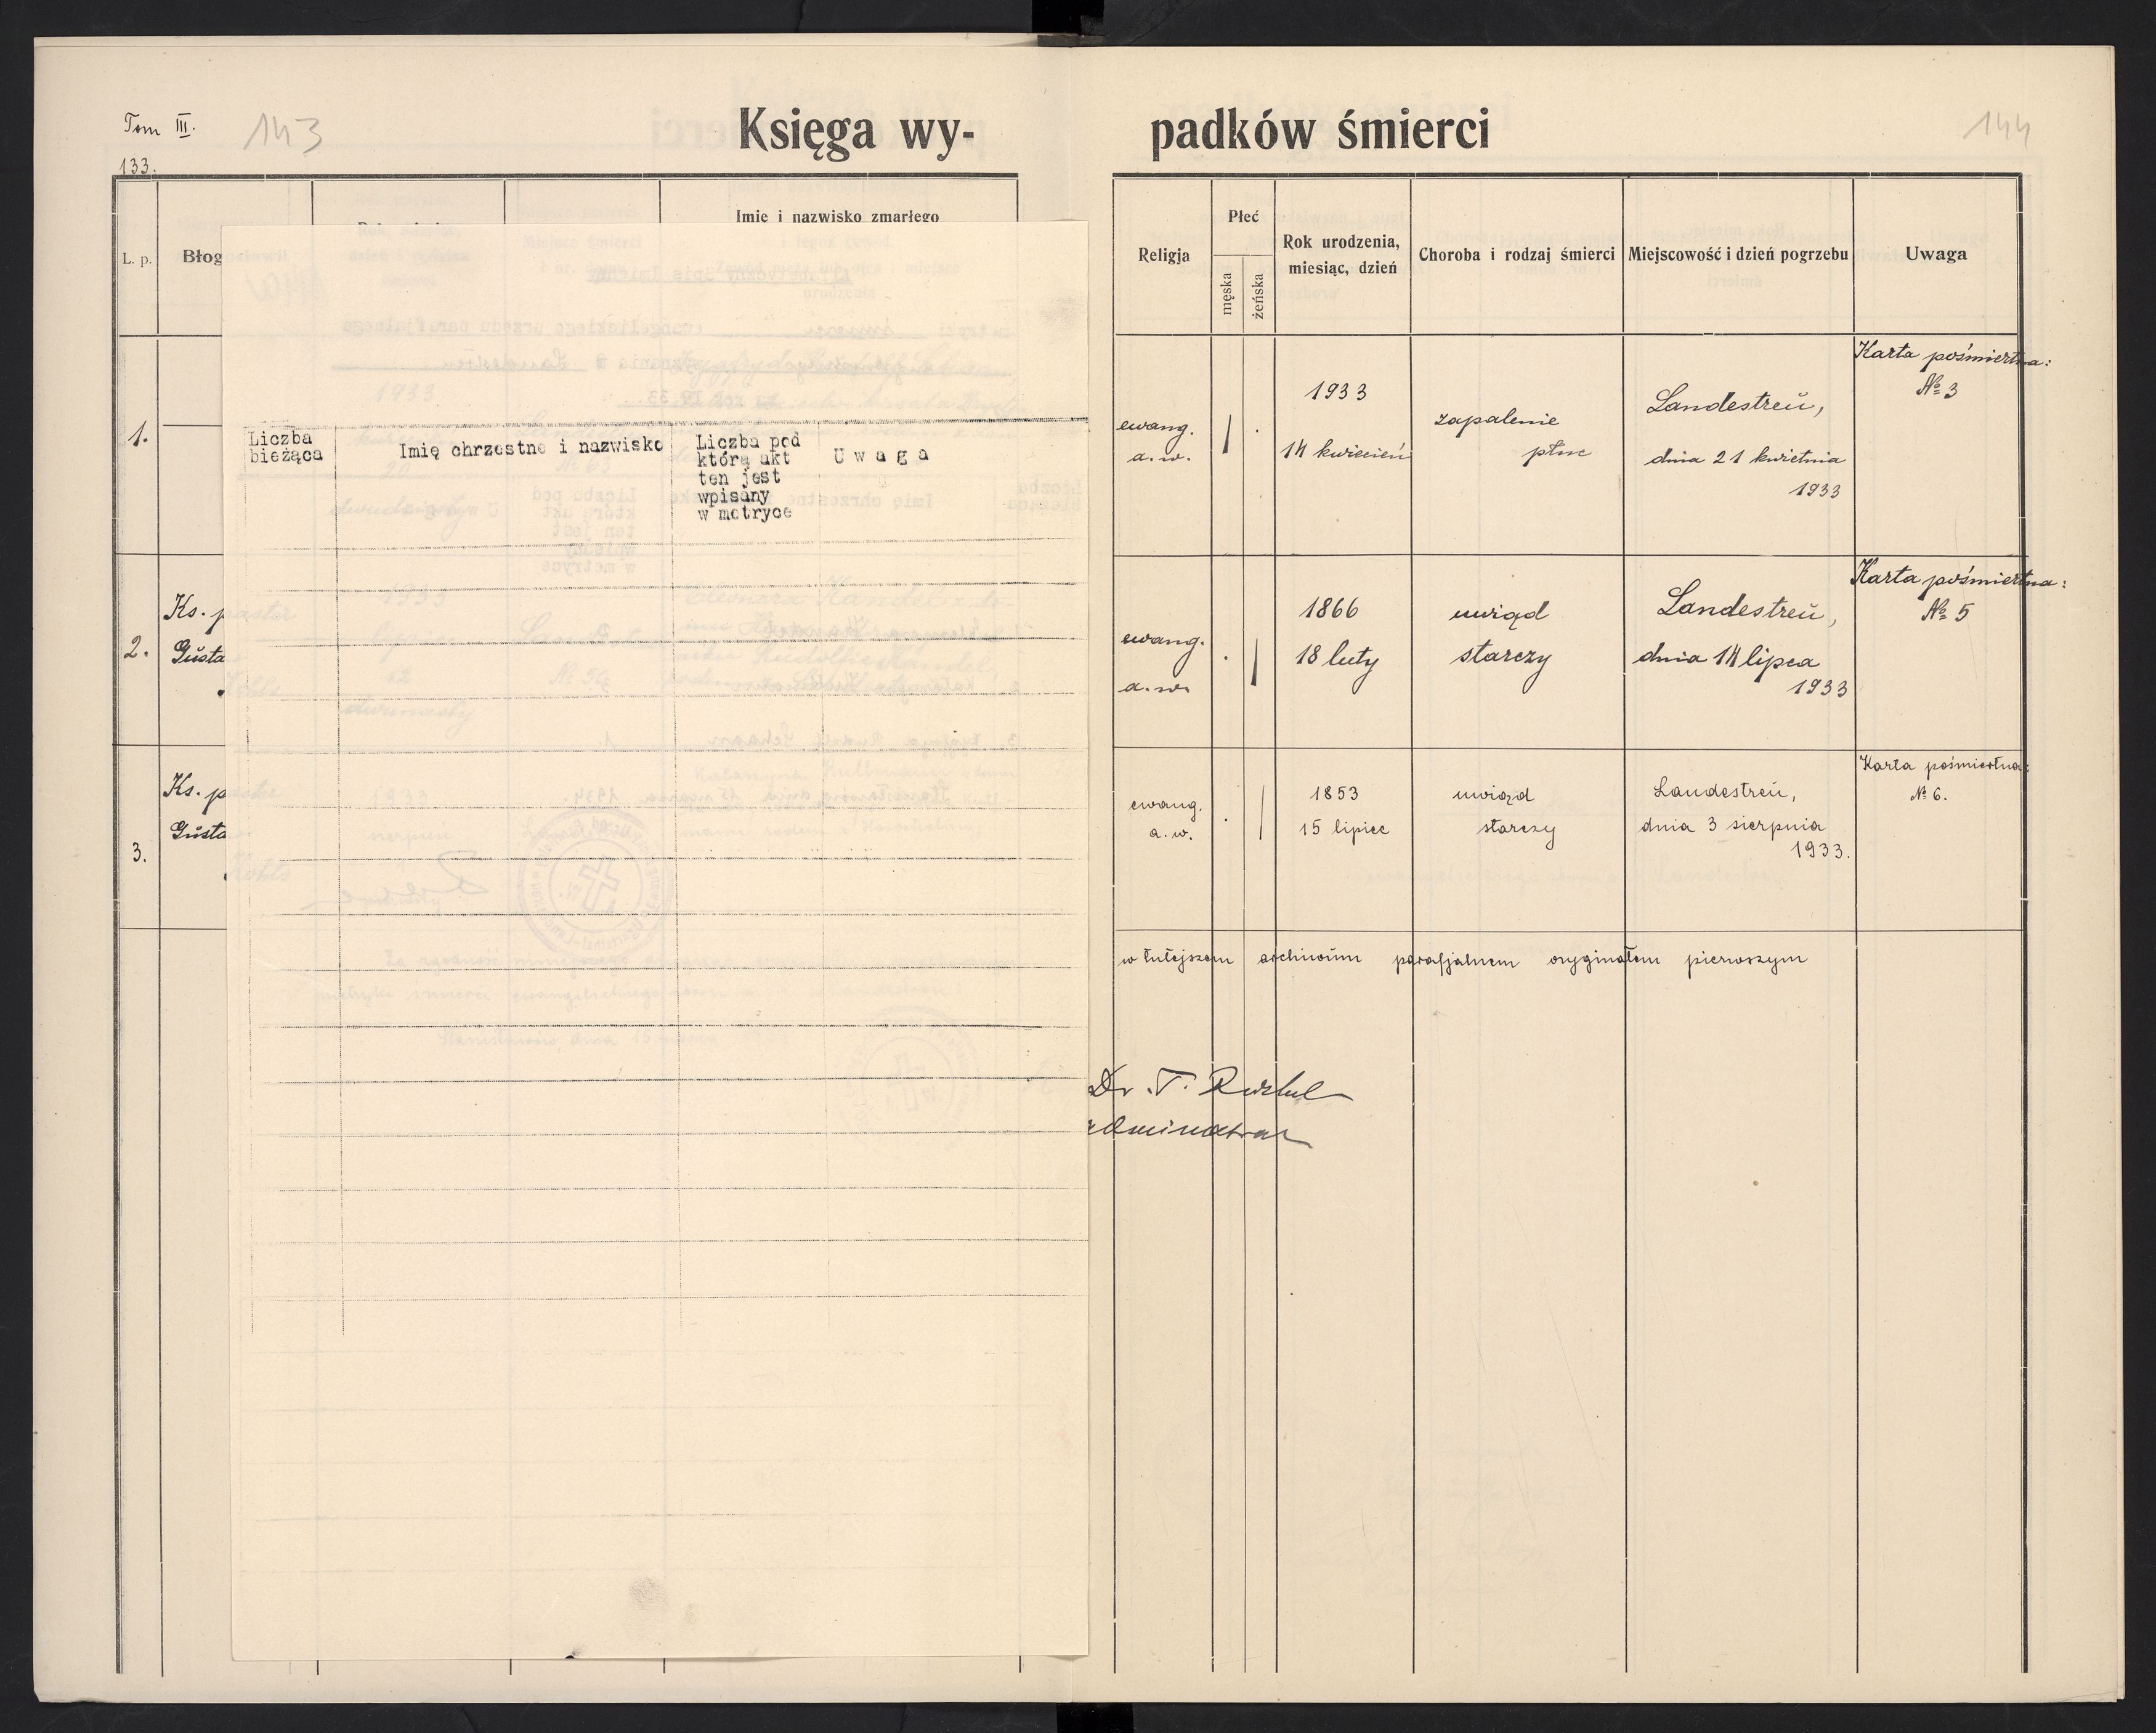 Tom III.
143
Księga wy-
padków śmierci
144
133.
L. p.
Błog
Imie i nazwisko zmarłego
Religja
Płeć
męska
żeńska
Rok urodzenia,
miesiąc, dzień
Choroba i rodzaj śmierci
Miejscowość i dzień pogrzebu
Uwaga
Liczba
bieżąca
Imię chrzestne i nazwisko
Liczba pod
którą akt
ten jest
wpisany
w metryce
U w a g a
1.
ewang.
a. w.
1933
14 kwiecień
zapalenie
płuc
Landestreü,
dnia 21 kwietnia
1933
Karta pośmiertna:
№ 3
2.
Ks. p
Gústa
ewang.
a. w.
1866
18 luty
uwiąd
starczy
Landestreü,
dnia 14 lipca
1933
Karta pośmiertna:
№ 5
3.
Ks. p
Gústa
ewang.
a. w.
1853
15 lipiec
uwiąd
starczy
Landestreü,
dnia 3 sierpnia
1933.
Karta pośmiertna:
№ 6.
w tutejszem archiwúm parafjalnem oryginałem pierwszym
Dr. T.